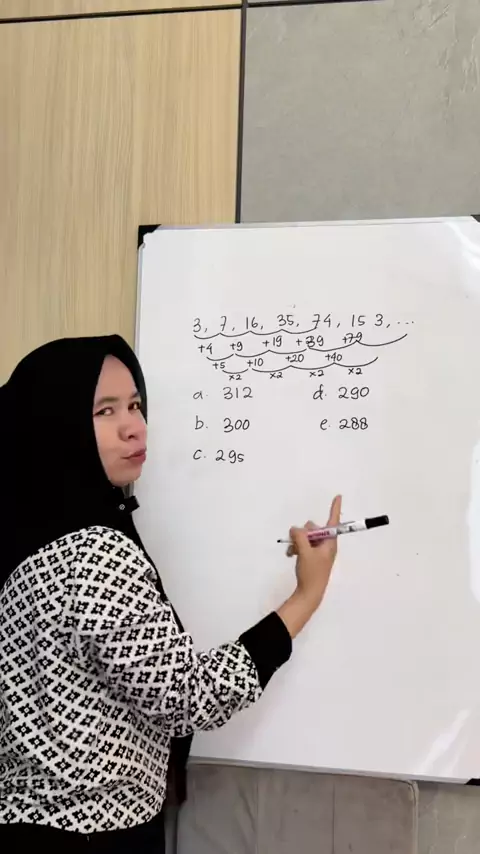 3, 7, 16, 35, 74, 153, ...
+4 +9 +19 +39 +79
+5 +10 +20 +40
×2 ×2 ×2 ×2
a. 312 d. 290
b. 300 e. 288
c. 295